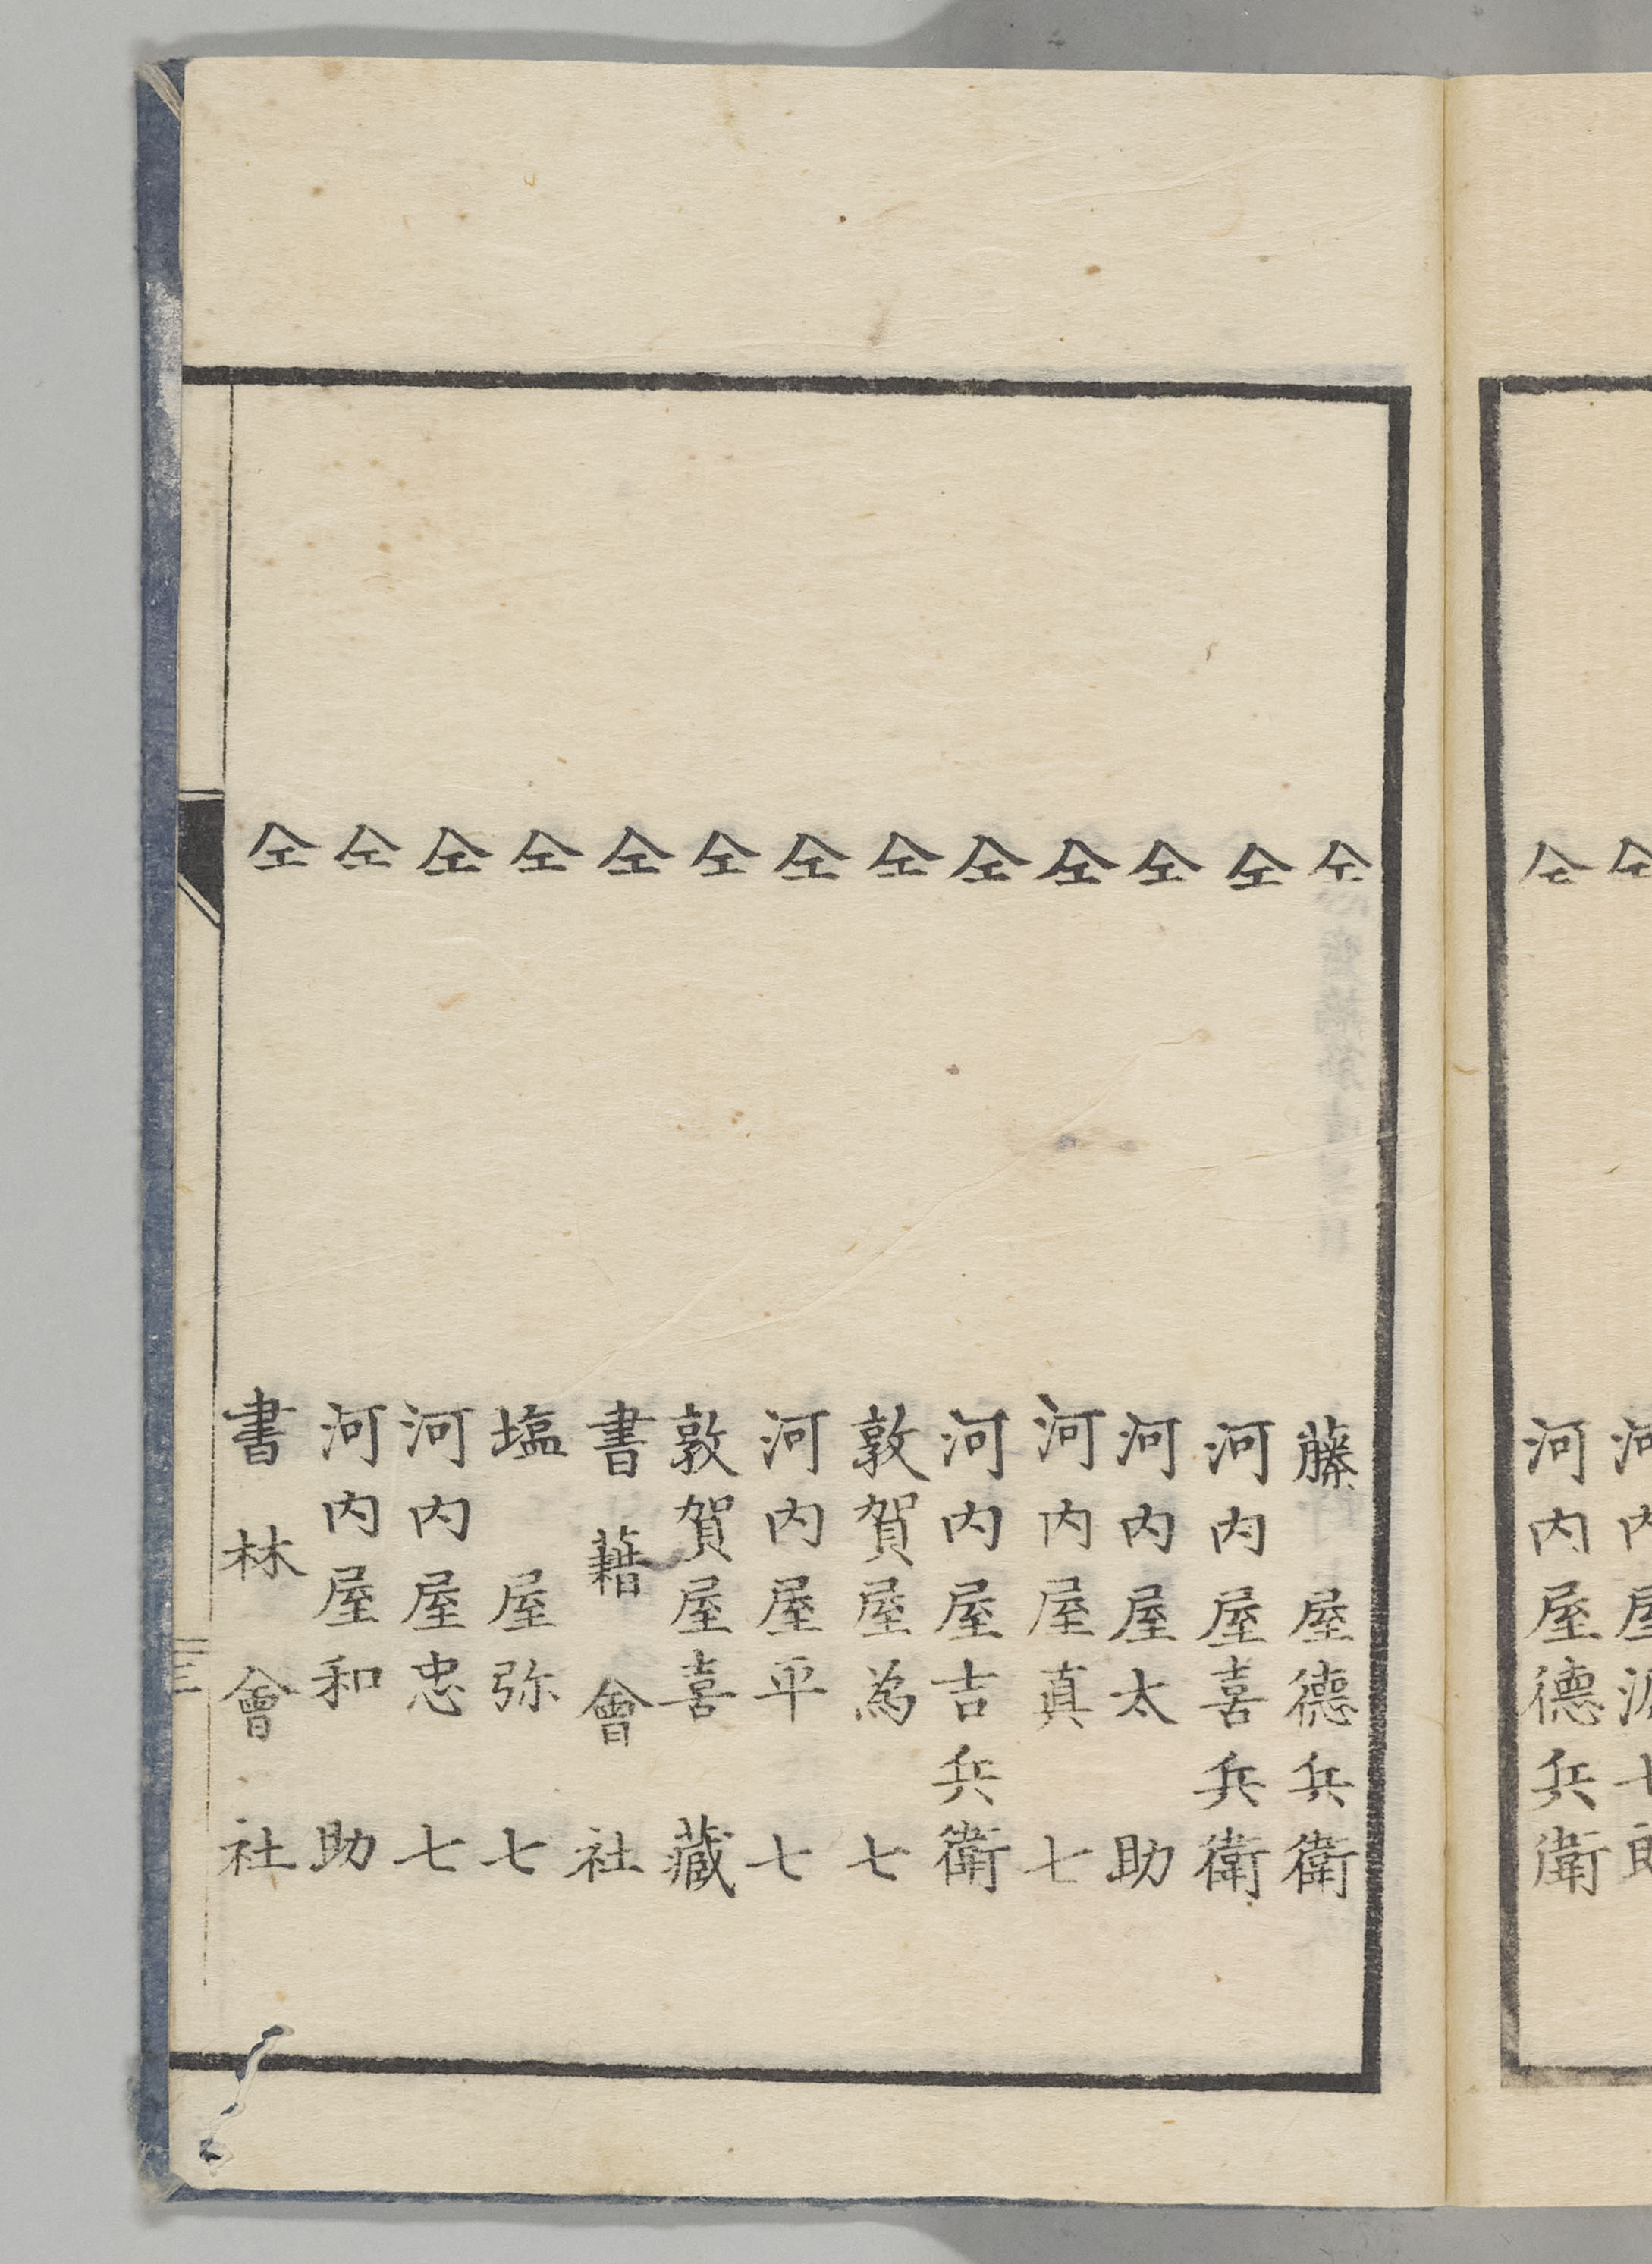 仝 河内屋源七郎
仝 河内屋德兵衛
仝 藤屋德兵衛
仝 河内屋喜兵衛
仝 河内屋太助
仝 河内屋真七
仝 河内屋吉兵衛
仝 敦賀屋為七
仝 河内屋平七
仝 敦賀屋喜藏
仝 書藉會社
仝 塩屋弥七
仝 河内屋忠七
仝 河内屋和助
仝 書林會社
三